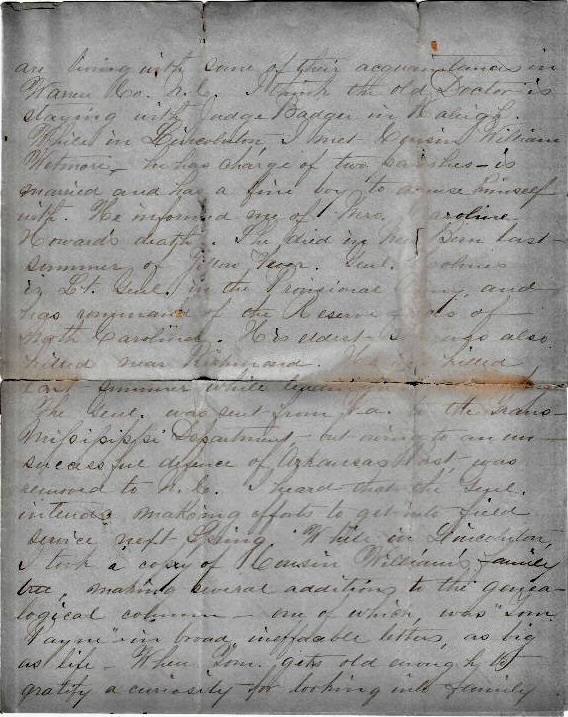 are living with some of their acquaintances in
Warren Co. N.C. I think the old Doctor is
staying with Judge Badger in Raleigh.
While in Lincolnton, I met Cousin William
Wetmore, he has charge of two parishes - is
married and has a fine boy, to amuse himself
with. He informed me of Mrs. Caroline
Howard's death. She died in New Bern last
summer of Yellow Fever. Genl. Holmes
is Lt. Genl. in the Provisional Army, and
has command of the Reserve of
North Carolina. His eldest was also
killed near Richmond. killed
last summer while
The Genl. was sent from Va. to the Trans-
Mississippi Department - but owing to an un-
successful defence of Arkansas Post, was
removed to N.C. I heard that the Genl.
intends making efforts to get into field
service next Spring. While in Lincolnton,
I took a copy of Cousin William's family
tree, making several additions to the genea-
logical column - one of which, was "Tom.
Payne" in broad, ineffable letters, as big
as life - When Tom. gets old enough to
gratify a curiosity for looking into family